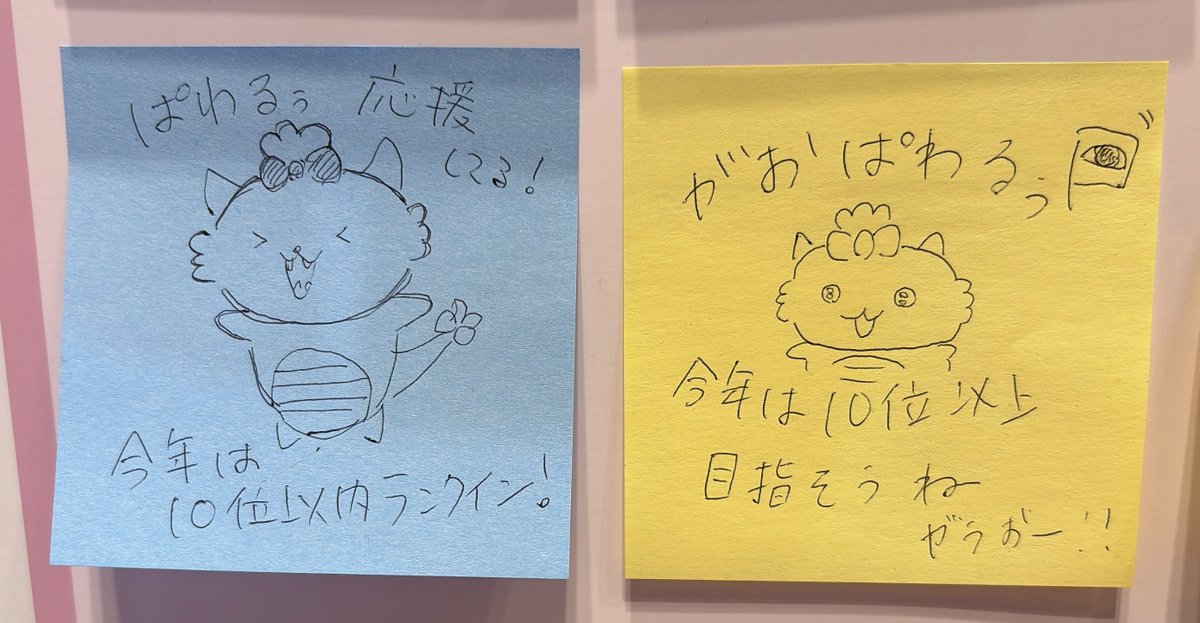 ぱわるぅ 応援
してる！
今年は
10位以内ランクイン！
がおぱわるぅ
今年は10位以上
目指そうね
がうおー！！